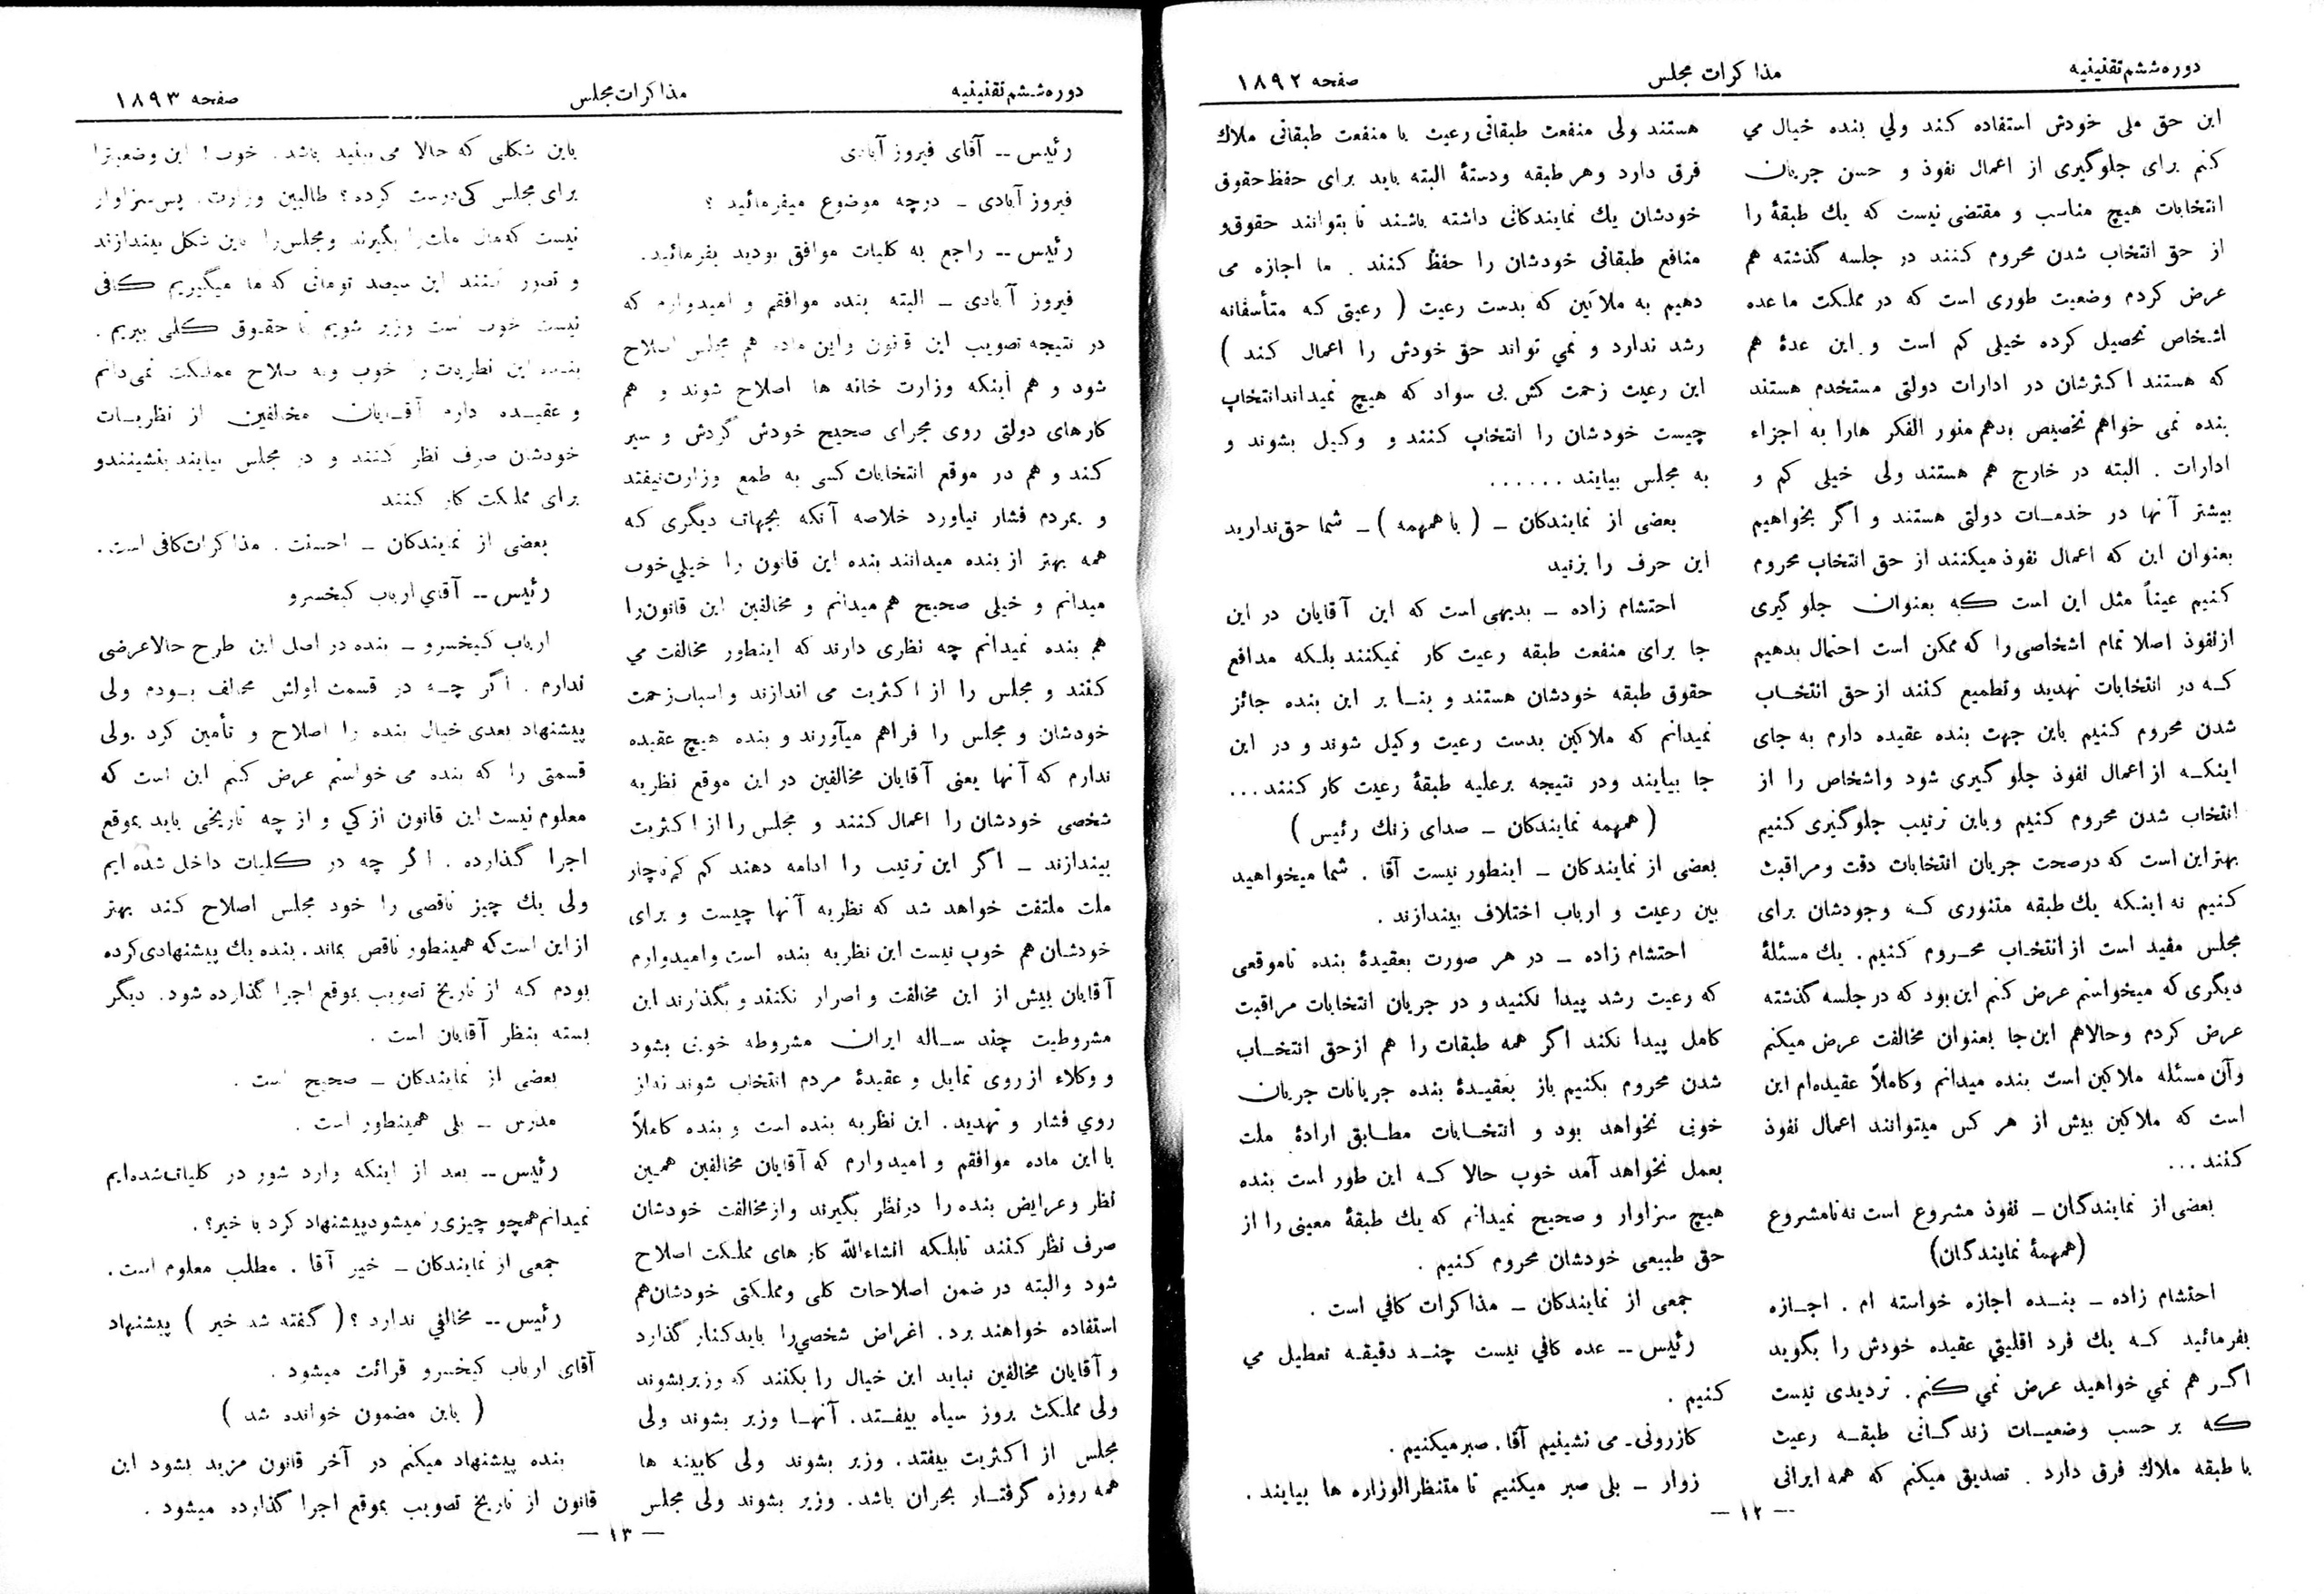 دوره ششم تقنینیه
مذاکرات مجلس
صفحه ۱۸۹۲
این حق ملی خودش استفاده کند ولي بنده خیال مي
کنم برای جلوگیری از اعمال نفوذ و حسن جریان
انتخابات هیچ مناسب و مقتضی نیست که یك طبقهٔ را
از حق انتخاب شدن محروم کنند در جلسه گذشته هم
عرض کردم وضعیت طوری است که در مملکت ما عده
اشخاص تحصیل کرده خیلی کم است و این عدهٔ هم
که هستند اکثرشان در ادارات دولتی مستخدم هستند
بنده نمی خواهم تخصیص بدهم منور الفکر هارا به اجزاء
ادارات . البته در خارج هم هستند ولی خیلی کم و
بیشتر آنها در خدمات دولتی هستند و اگر بخواهیم
بعنوان این که اعمال نفوذ میکنند از حق انتخاب محروم
کنیم عیناً مثل این است که بعنوان جلو گیری
ازنفوذ اصلا تمام اشخاصی را که ممکن است احتمال بدهیم
که در انتخابات تهدید وتطمیع کنند از حق انتخاب
شدن محروم کنیم باین جهت بنده عقیده دارم به جای
اینکه از اعمال نفوذ جلو گیری شود واشخاص را از
انتخاب شدن محروم کنیم وباین ترتیب جلوگیری کنیم
بهتراین است که درصحت جریان انتخابات دقت ومراقبت
کنیم نه اینکه یك طبقه متنوری که وجودشان برای
مجلس مفید است از انتخاب محروم کنیم . یك مسئلهٔ
دیگری که میخواستم عرض کنم این بود که در جلسه گذشته
عرض کردم وحالاهم این جا بعنوان مخالفت عرض میکنم
وآن مسئله ملاکین است بنده میدانم وکاملاً عقیده‌ام این
است که ملاکین بیش از هر کس میتوانند اعمال نفوذ
کنند ...
بعضی از نمایندگان ـ نفوذ مشروع است نه نامشروع
(همهمهٔ نمایندگان)
احتشام زاده ـ بنده اجازه خواسته ام . اجازه
بفرمائید که یك فرد اقلیتي عقیده خودش را بگوید
اگر هم نمي خواهید عرض نمي کنم . تردیدی نیست
که بر حسب وضعیات زندگانی طبقه رعیت
با طبقه ملاك فرق دارد . تصدیق میکنم که همه ایرانی
هستند ولی منفعت طبقاتی رعیت با منفعت طبقاتی ملاك
فرق دارد وهر طبقه ودستهٔ البته باید برای حفظ حقوق
خودشان یك نمایندکانی داشته باشند تا بتوانند حقوق و
منافع طبقاتی خودشان را حفظ کنند . ما اجازه می
دهیم به ملاکین که بدست رعیت ( رعیتی که متأسفانه
رشد ندارد و نمي تواند حق خودش را اعمال کند )
این رعیت زحمت کش بی سواد که هیچ نمیداند انتخاب
چیست خودشان را انتخاب کنند و وکیل بشوند و
به مجلس بیایند ......
بعضی از نمایندکان ـ ( با همهمه ) ـ شما حق ندارید
این حرف را بزنید
احتشام زاده ـ بدیهی است که این آقایان در این
جا برای منفعت طبقه رعیت کار نمیکنند بلکه مدافع
حقوق طبقه خودشان هستند و بنا بر این بنده جائز
نمیدانم که ملاکین بدست رعیت وکیل شوند و در این
جا بیایند ودر نتیجه برعلیه طبقهٔ رعیت کار کنند...
( همهمه نمایندکان ـ صدای زنك رئیس )
بعضی از نمایندکان ـ اینطور نیست آقا . شما میخواهید
بین رعیت و ارباب اختلاف بیندازند .
احتشام زاده ـ در هر صورت بعقیدهٔ بنده تاموقعی
که رعیت رشد پیدا نکنید و در جریان انتخابات مراقبت
کامل پیدا نکند اگر همه طبقات را هم از حق انتخاب
شدن محروم بکنیم باز بعقیدهٔ بنده جریانات جریان
خوبی نخواهد بود و انتخابات مطابق ارادهٔ ملت
بعمل نخواهد آمد خوب حالا که این طور است بنده
هیچ سزاوار و صحیح نمیدانم که یك طبقهٔ معینی را از
حق طبیعی خودشان محروم کنیم .
جمعی از نمایندکان ـ مذاکرات کافي است .
رئیس -- عده کافي نیست چند دقیقه تعطیل مي
کنیم .
کازرونی ـ می نشینیم آقا . صبر میکنیم .
زوار ـ بلی صبر میکنیم تا متنظرالوزاره ها بیایند .
— ۱۲ —
دوره ششم تقنینیه
مذاکرات مجلس
صفحه ۱۸۹۳
رئیس -- آقای فیروز آبادی
فیروز آبادی ـ درچه موضوع میفرمائید ؟
رئیس -- راجع به کلیات موافق بودید بفرمائید .
فیروز آبادی ـ البته بنده موافقم و امیدوارم که
در نتیجه تصویب این قانون واین ماده هم مجلس اصلاح
شود و هم اینکه وزارت خانه ها اصلاح شوند و هم
کارهای دولتی روی مجرای صحیح خودش گردش و سیر
کند و هم در موقع انتخابات کسی به طمع وزارت نیفتد
و بمردم فشار نیاورد خلاصه آنکه بجهات دیگری که
همه بهتر از بنده میدانند بنده این قانون را خیلي خوب
میدانم و خیلی صحیح هم میدانم و مخالفین این قانون را
هم بنده نمیدانم چه نظری دارند که اینطور مخالفت مي
کنند و مجلس را از اکثریت می اندازند و اسباب زحمت
خودشان و مجلس را فراهم میآورند و بنده هیچ عقیده
ندارم که آنها یعنی آقایان مخالفین در این موقع نظریه
شخصی خودشان را اعمال کنند و مجلس را از اکثریت
بیندازند ـ اگر این ترتیب را ادامه دهند کم کم ناچار
ملت ملتفت خواهد شد که نظریه آنها چیست و برای
خودشان هم خوب نیست این نظریه بنده است و امیدوارم
آقایان بیش از این مخالفت و اصرار نکنند و بگذارند این
مشروطیت چند ساله ایران مشروطه خوبی بشود
و وکلاء از روی تمایل و عقیدهٔ مردم انتخاب شوند نه از
روي فشار و تهدید . این نظریه بنده است و بنده کاملاً
با این ماده موافقم و امیدوارم که آقایان مخالفین همین
نظر وعرایض بنده را در نظر بگیرند و از مخالفت خودشان
صرف نظر کنند تابلکه انشاءالله کار های مملکت اصلاح
شود والبته در ضمن اصلاحات کلی ومملکتی خودشان هم
استفاده خواهند برد . اغراض شخصي را باید کنار گذارد
و آقایان مخالفین نباید این خیال را بکنند که وزیر بشوند
ولی مملکت بروز سیاه بیفتد . آنها وزیر بشوند ولی
مجلس از اکثریت بیفتد . وزیر بشوند ولی کابینه ها
همه روزه گرفتار بحران باشد . وزیر بشوند ولی مجلس
باین شکلی که حالا می بینید باشد . خوب ! این وضعیترا
برای مجلس کی درست کرده ؟ طالبین وزارت . پس سزاوار
نیست که مال ملت را بگیرند و مجلس را باین شکل بیندازند
و تصور کنند این سیصد تومانی که ما میگیریم کافی
نیست خوب است وزیر شویم تا حقوق کلی ببریم .
بنده این نظریات را خوب وبه صلاح مملکت نمی دانم
و عقیده دارم آقایان مخالفین از نظریات
خودشان صرف نظر کنند و در مجلس بیایند بنشینند و
برای مملکت کار کنند
بعضی از نمایندکان ـ احسنت . مذاکرات کافی است .
رئیس -- آقاي ارباب کیخسرو
ارباب کیخسرو ـ بنده در اصل این طرح حالا عرضی
ندارم . اگر چه در قسمت اولش مخالف بودم ولی
پیشنهاد بعدی خیال بنده را اصلاح و تأمین کرد . ولی
قسمتی را که بنده می خواستم عرض کنم این است که
معلوم نیست این قانون از کي و از چه تاریخی باید بموقع
اجرا گذارده . اگر چه در کلیات داخل شده ایم
ولی یك چیز ناقصی را خود مجلس اصلاح کند بهتر
از این است که همینطور ناقص بماند . بنده یك پیشنهادی کرده
بودم که از تاریخ تصویب بموقع اجرا گذارده شود . دیگر
بسته بنظر آقایان است .
بعضی از نمایندکان ـ صحیح است .
مدرس ـ بلی همینطور است .
رئیس -- بعد از اینکه وارد شور در کلیات شده ایم
نمیدانم همچو چیزی را میشود پیشنهاد کرد یا خیر ؟ .
جمعی از نمایندکان ـ خیر آقا . مطلب معلوم است .
رئیس -- مخالفي ندارد ؟ ( گفته شد خیر ) پیشنهاد
آقای ارباب کیخسرو قرائت میشود .
( باین مضمون خوانده شد )
بنده پیشنهاد میکنم در آخر قانون مزید بشود این
قانون از تاریخ تصویب بموقع اجرا گذارده میشود .
— ۱۳ —